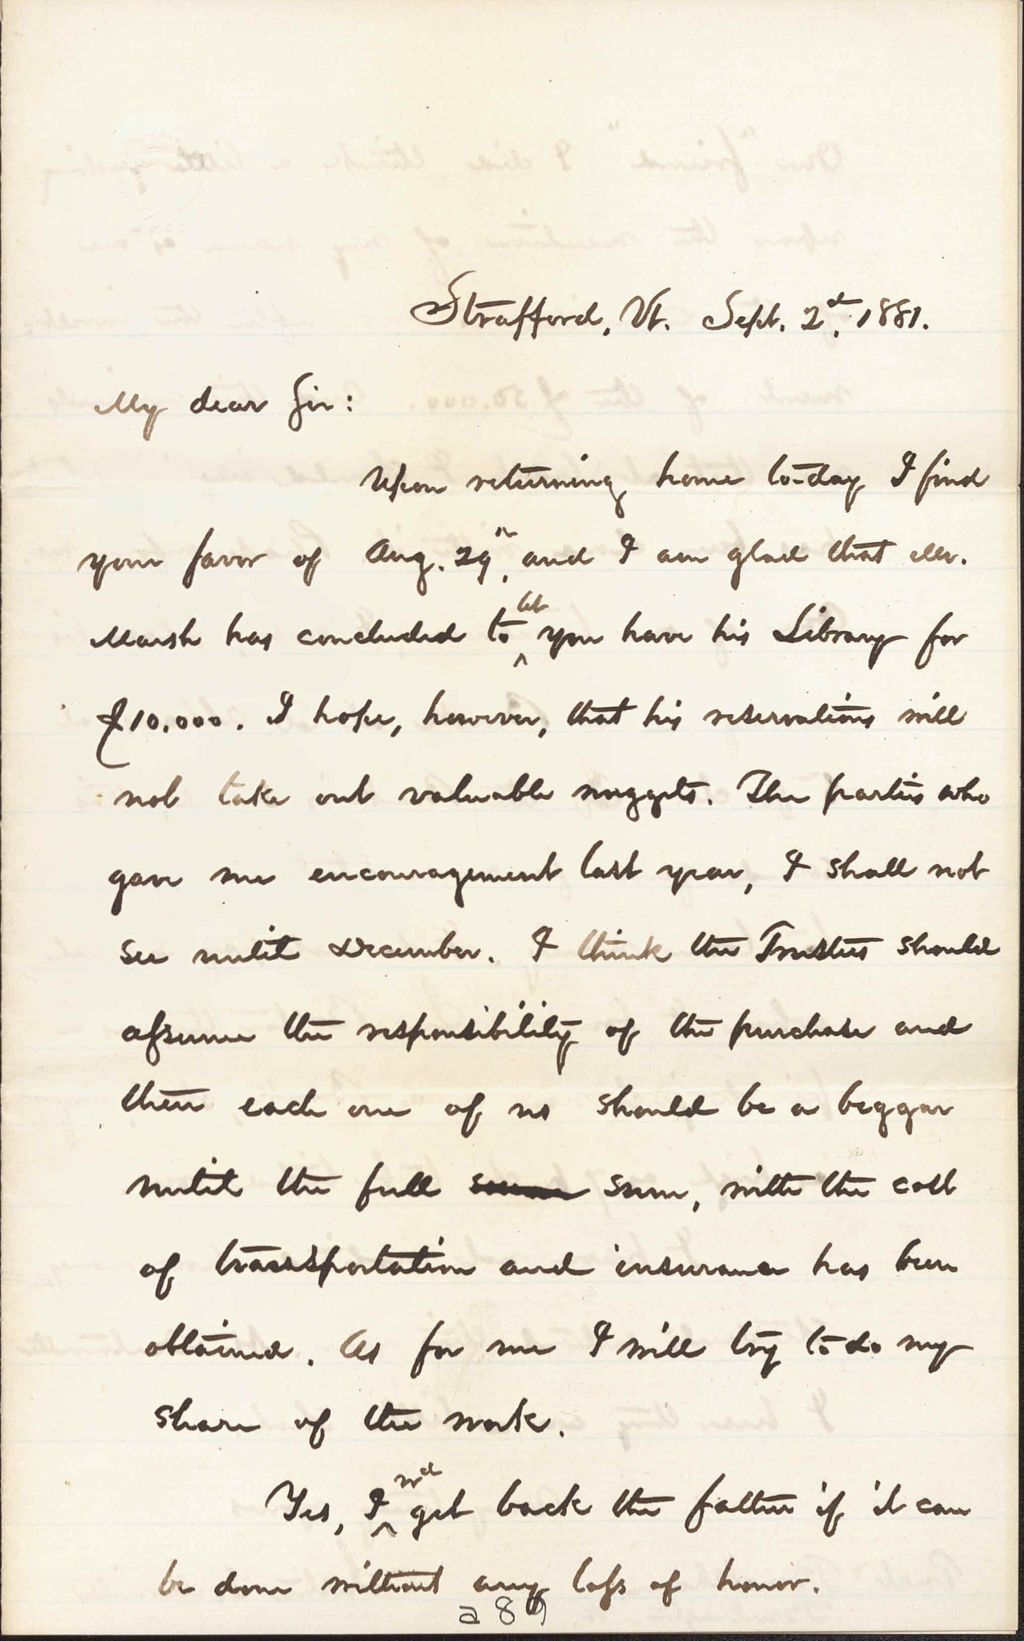 Strafford, Vt. Sept. 2d, 1881.
My dear Sir:
Upon returning home to-day I find
your favor of Aug. 29th, and I am glad that Mr.
Marsh has concluded to let you have his Library for
$10,000. I hope, however, that his reservations will
not take out valuable nuggets. The parties who
gave me encouragement last year, I shall not
see until December. I think the Trustees should
assume the responsibility of the purchase and
then each one of us should be a beggar
until the full sum, with the cost
of transportation and insurance has been
obtained. As for me I will try to do my
share of the work.
Yes, I wd get back the father if it can
be done without any loss of honor.